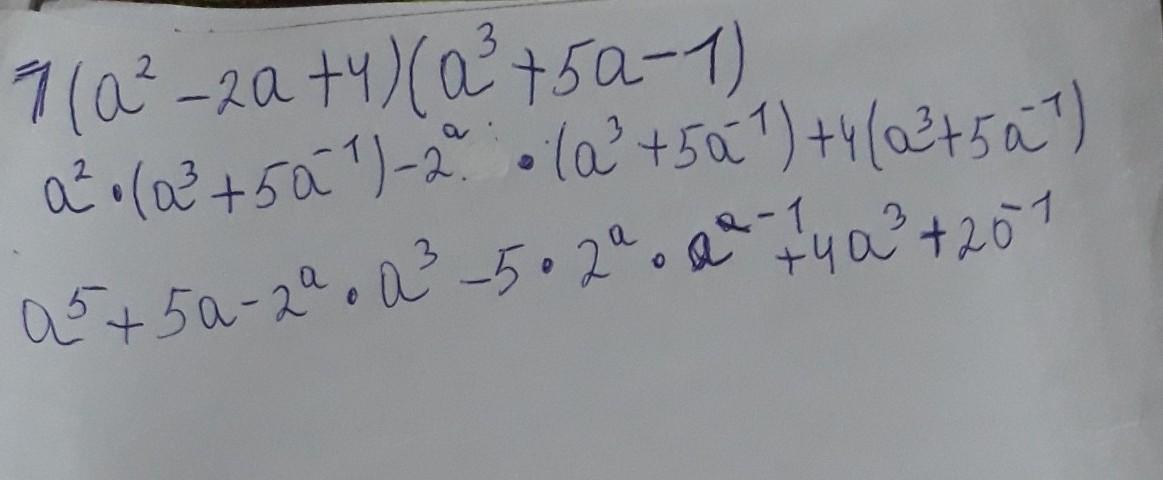 1(a² - 2a + 4)(a³ + 5a - 1)
a² · (a³ + 5a⁻¹) - 2ᵃ · (a³ + 5a⁻¹) + 4(a³ + 5a⁻¹)
a⁵ + 5a - 2ᵃ · a³ - 5 · 2ᵃ · aᵃ⁻¹ + 4a³ + 20⁻¹